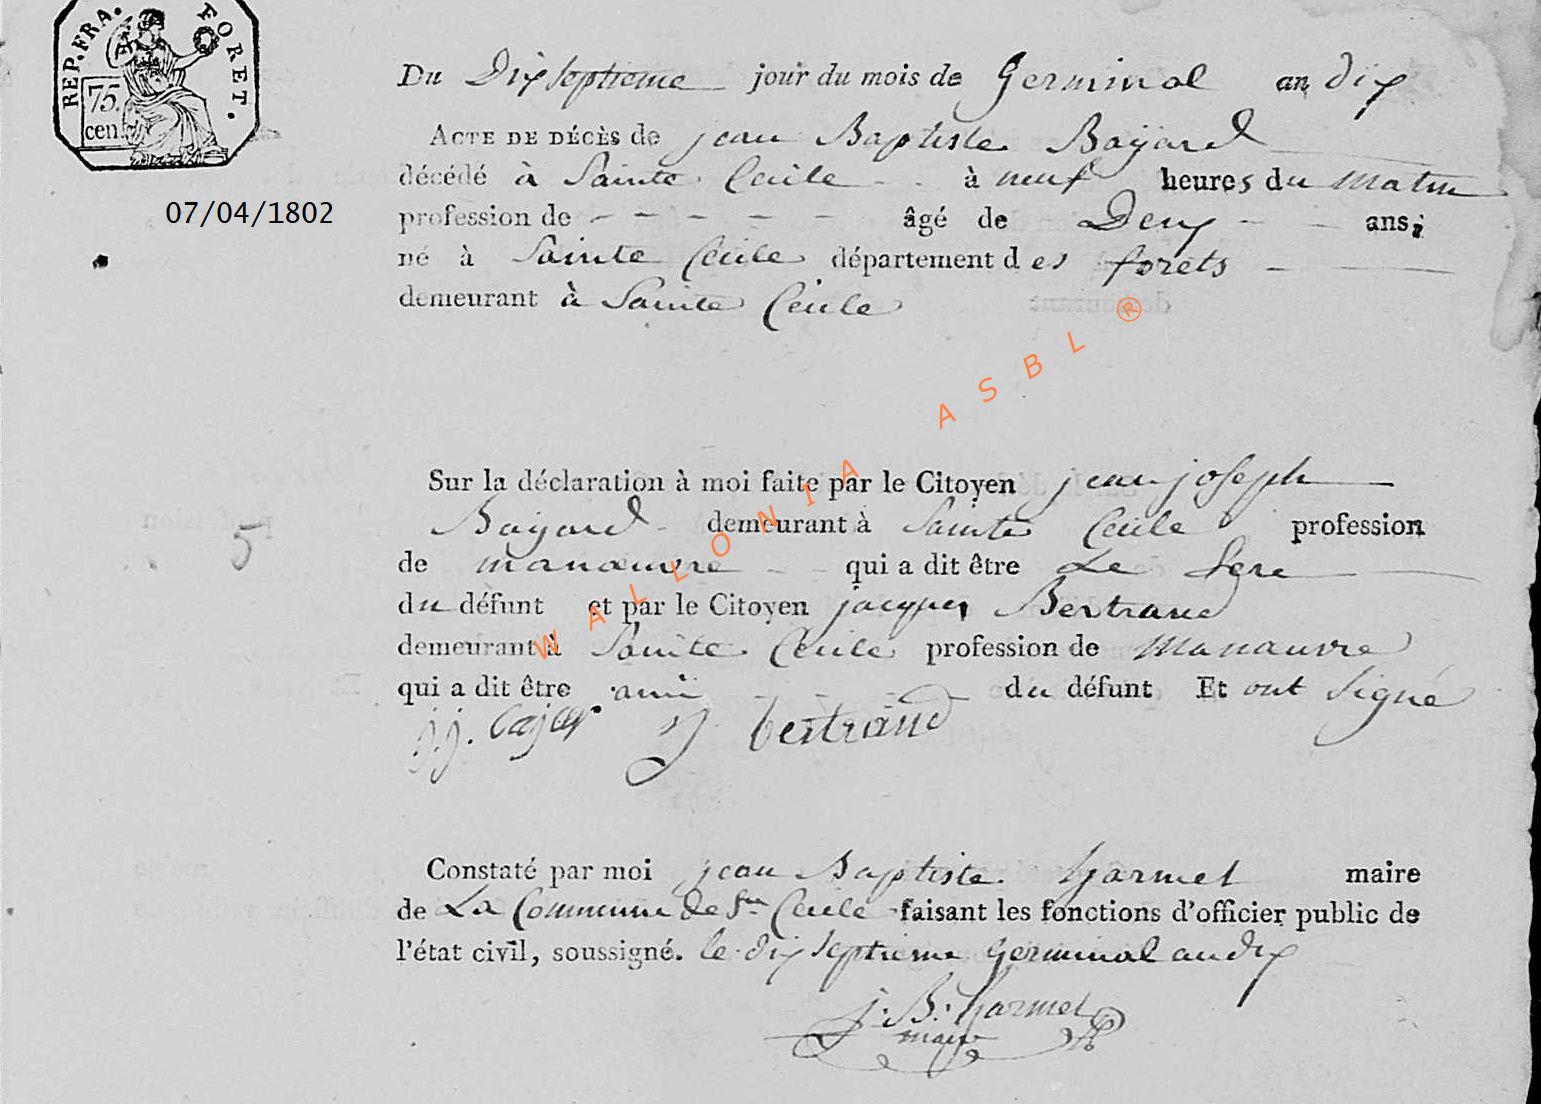 REP. FRA. FORET.
75.
cen.
Du Dix septieme jour du mois de Germinal an dix
ACTE DE DÉCÈS de jean Baptiste Bayard
décédé à Sainte Cecile à neuf heures du matin
07/04/1802
profession de - - - - - âgé de Deux ans;
né à Sainte Cecile département des forets
demeurant à Sainte Cecile
Sur la déclaration à moi faite par le Citoyen jean joseph
Bayard demeurant à Sainte Cecile profession
5
de manœuvre qui a dit être Le Pere
du défunt et par le Citoyen jacques Bertrand
demeurant à Sainte Cecile profession de Manœuvre
qui a dit être ami du défunt Et ont signé
j j. j bertrand
Constaté par moi jean Baptiste Harmel maire
de La Commune de Ste Cecile faisant les fonctions d'officier public de
l'état civil, soussigné. le dix septieme Germinal an dix
j. B. harmel
maire
WALLONIA ASBL ®